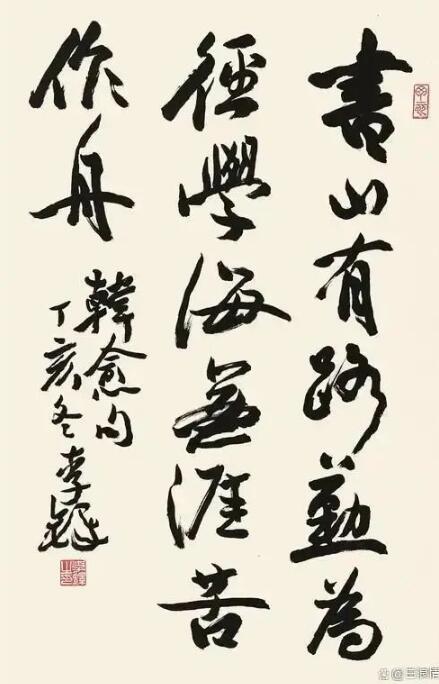 書山有路勤為
徑學海無涯苦
作舟
韓愈句
丁亥冬李鐸